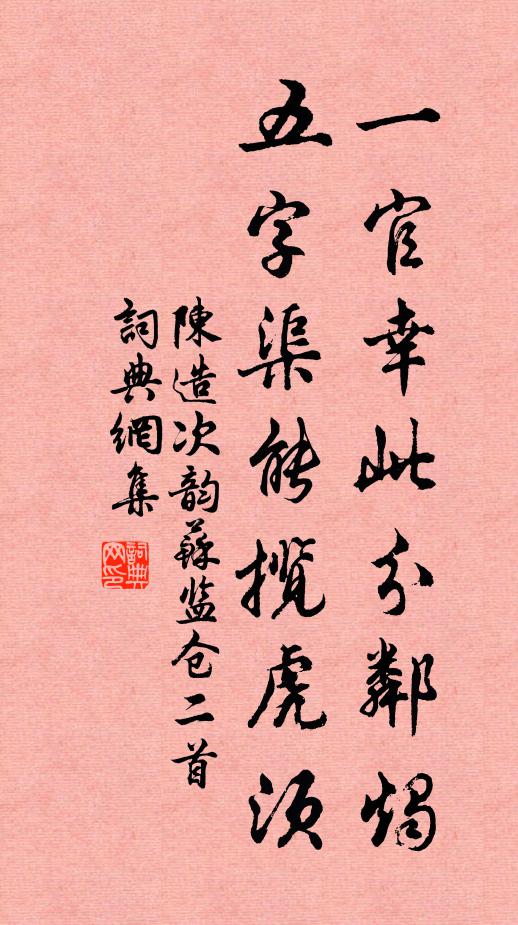 一官幸此分鄰燭
五字渠能攬虎須
陳造次韵蘇监仓二首
詞典網集
詞典
网印